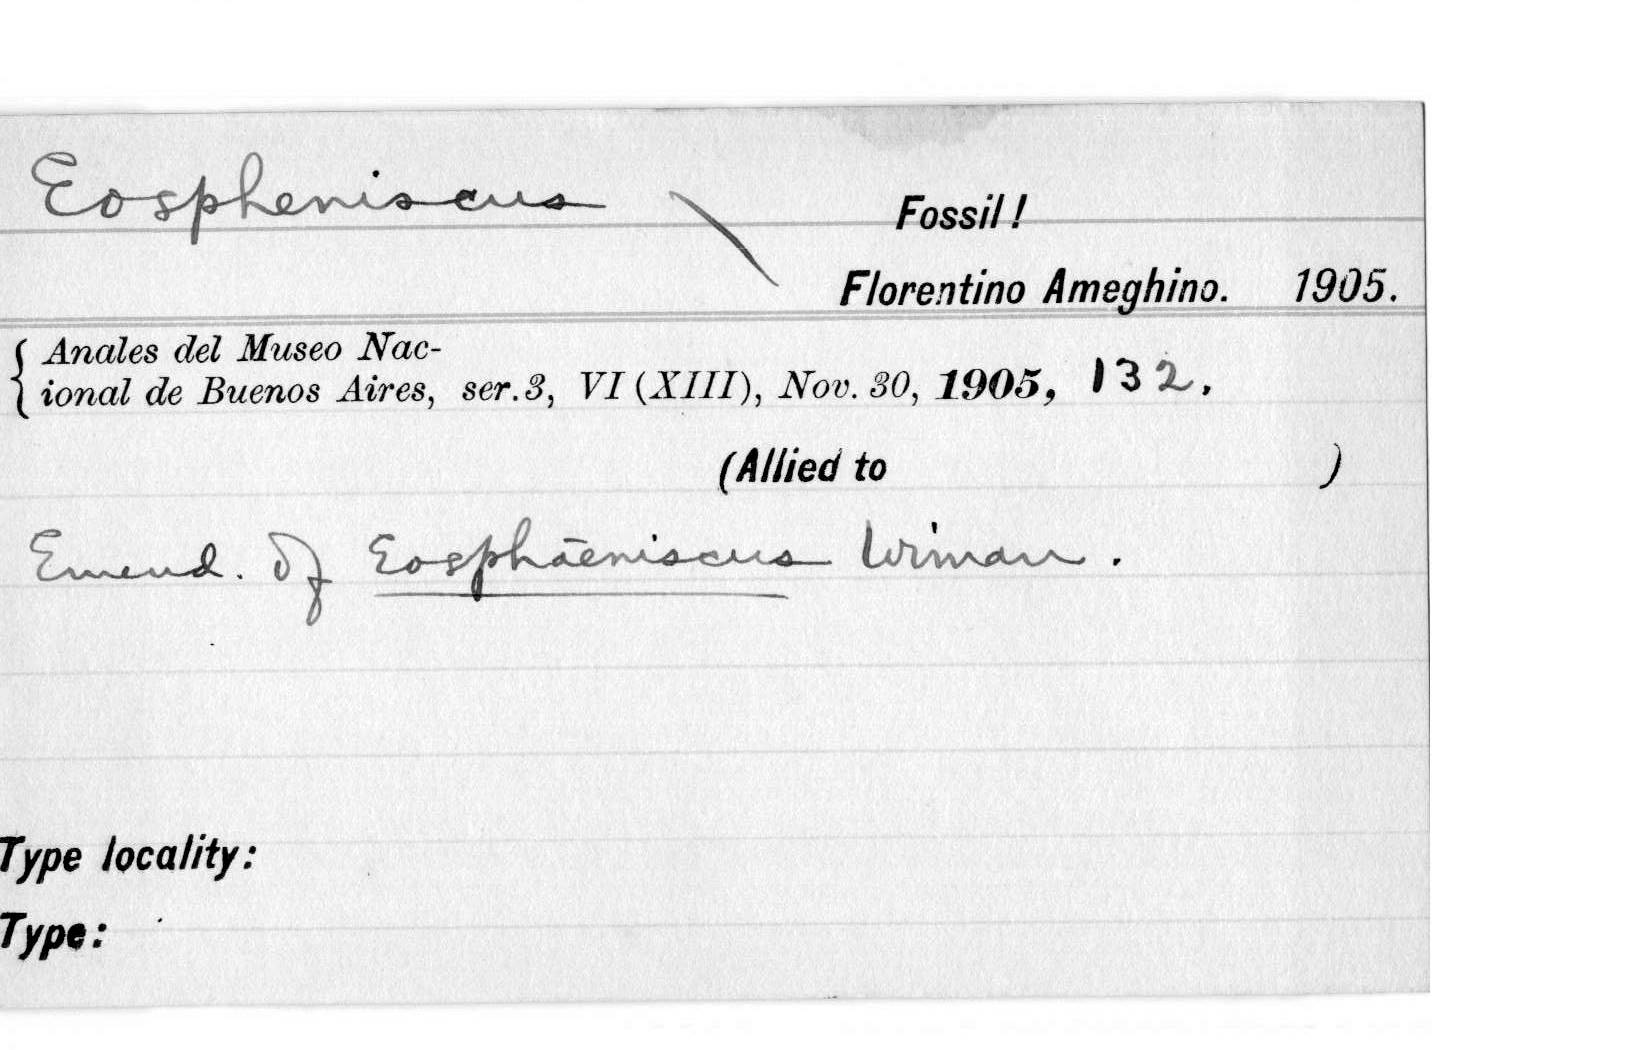 Eospheniscus
Fossil!
Florentino Ameghino. 1905.
Anales del Museo Nac-
ional de Buenos Aires, ser. 3, VI (XIII), Nov. 30, 1905, 132.
(Allied to )
Emend. of Eosphaeniscus Wiman.
Type locality:
Type: